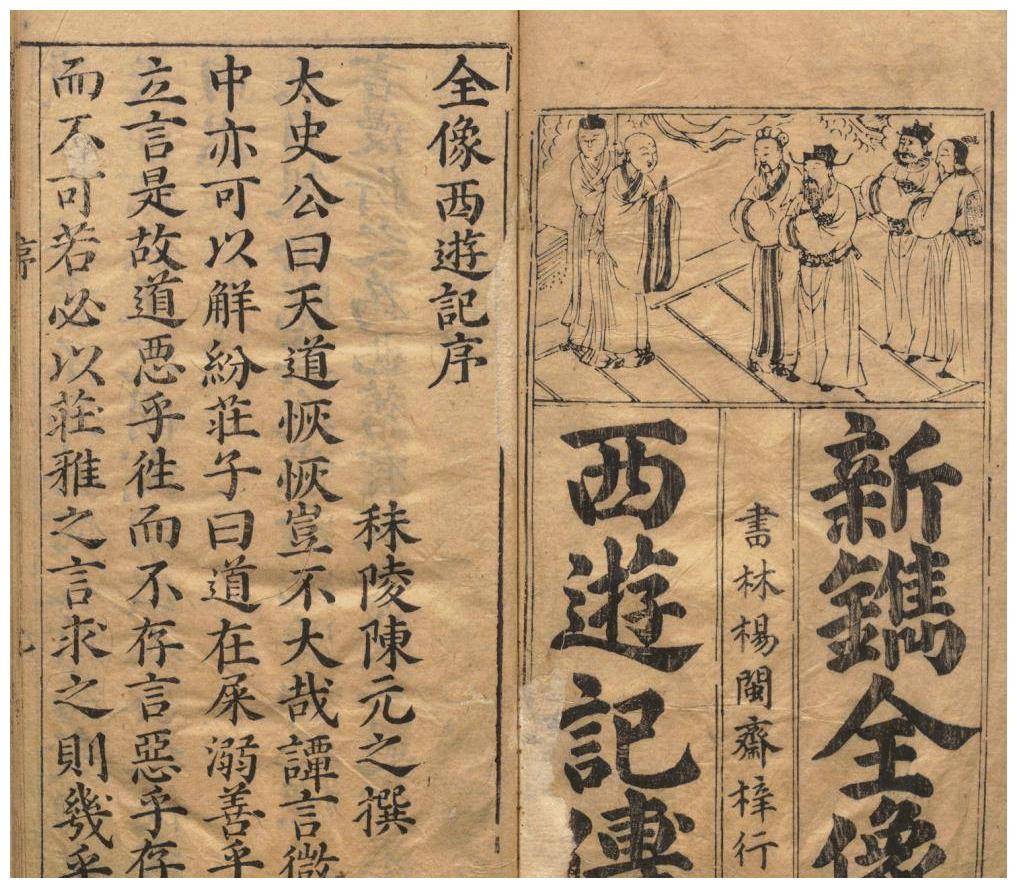 新鐫全像
書林楊閩齋梓行
西遊記傳
全像西遊記序
秣陵陳元之撰
太史公曰天道恢恢豈不大哉譚言微
中亦可以觧紛荘子曰道在屎溺善乎
立言是故道悪乎徃而不存言惡乎存
而不可若必以荘雅之言求之則幾乎
序